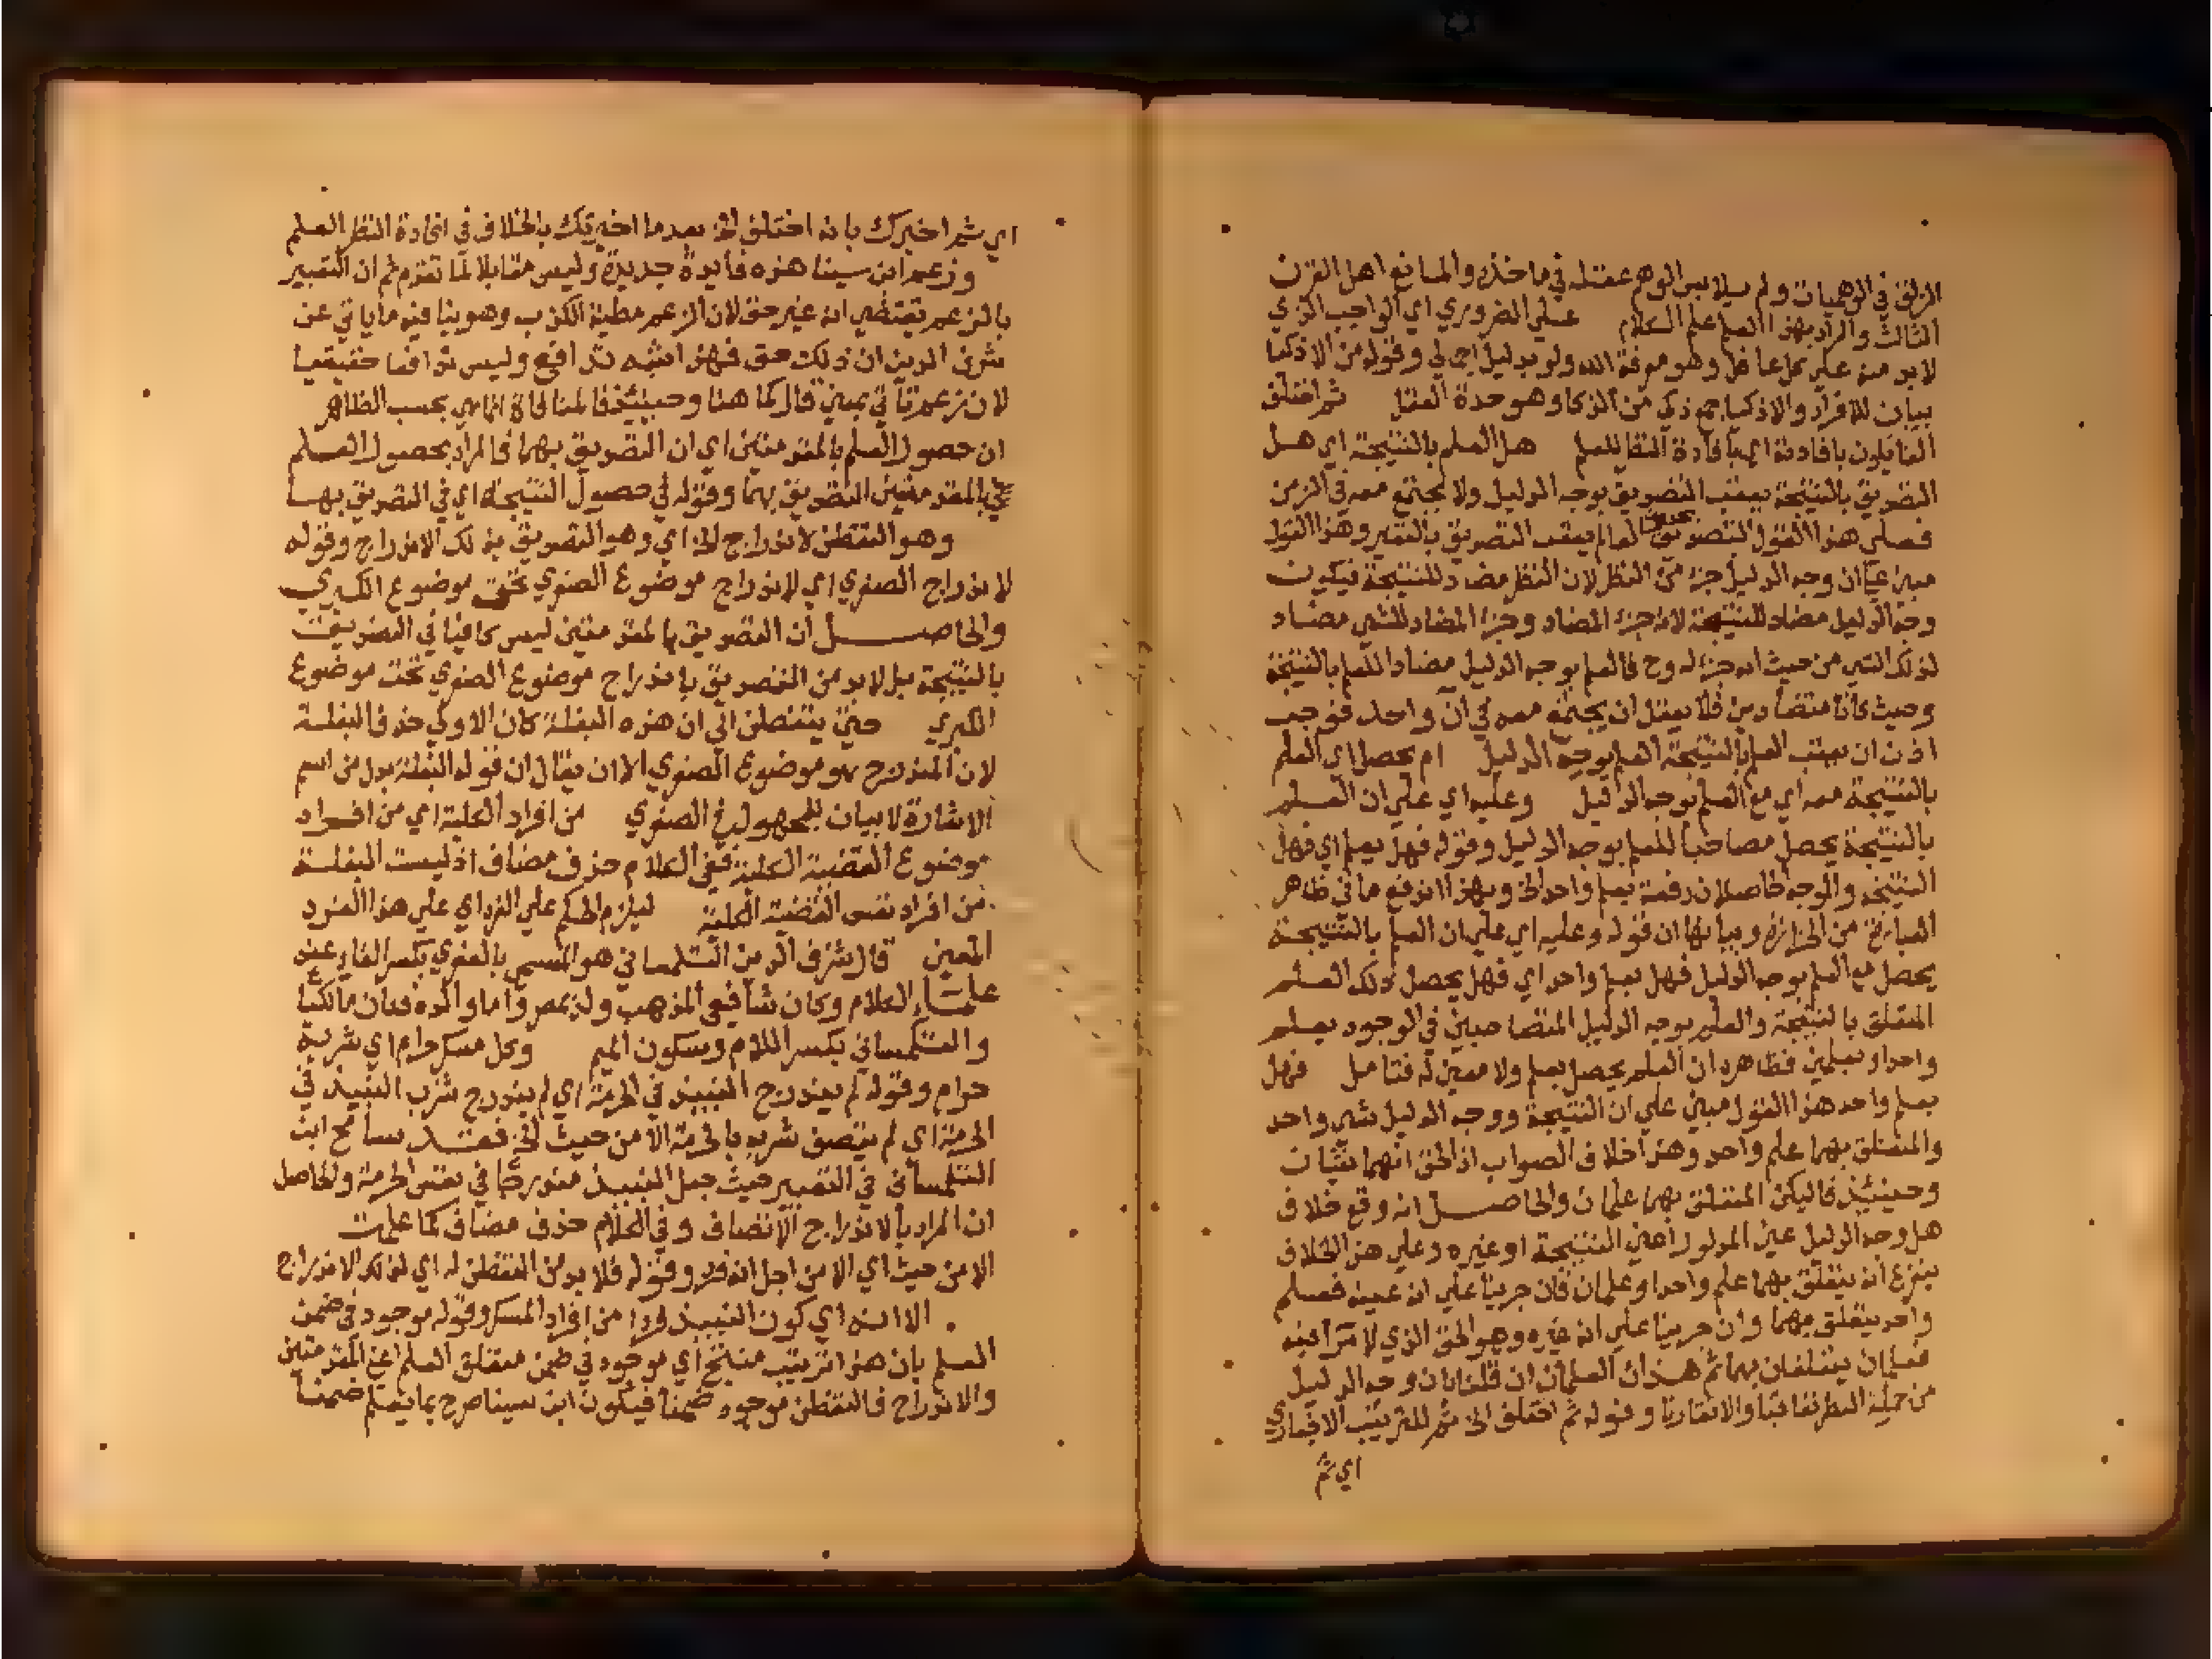 المزلق في الوهميات ولم يلابس الوهم عقله في ماخذه والمانع اهل القرن
الثالث والمراد بهذا العلم علم الكلام علي الضروري اي الواجب الذي
لابد منه علي كل عاقل وهو معرفة الله ولو بدليل اجمالي وقوله من الاذكيا
بيان للافراد والاذكيا جمع ذكي من الذكا وهو حدة العقل ثم اختلف
القايلون بافادته اي بافادة النظر للعلم هل العلم بالنتيجة اي هل
التصديق بالنتيجة يعقب التصديق بوجه الدليل ولا يجتمع معه في الزمن
فعلي هذا القول التصديق بحدوث العالم يعقب التصديق بالتغير وهذا القول
مبني علي ان وجه الدليل جزء من النظر لان النظر مضاد للنتيجة فيكون
وجه الدليل مضاد للنتيجة لانه جزء المضاد وجزء المضاد للشي مضاد
لذلك الشي من حيث انه جزء له وح فالعلم بوجه الدليل مضاد للعلم بالنتيجة
وحيث كانا متضادين فلا يعقل ان يجتمع معه في آن واحد فوجب
اذن ان يعقب العلم بالنتيجة العلم بوجه الدليل ام يحصل اي العلم
بالنتيجة معه اي مع العلم بوجه الدليل وعليه اي علي ان العلم
بالنتيجة يحصل مصاحبا للعلم بوجه الدليل وقوله فهل بعلم اي فهل
النتيجة والوجه حاصلان دفعة بعلم واحد الخ وبهذا اندفع ما في ظاهر
العبارة من الحزازة وبيانها ان قوله وعليه اي علي ان العلم بالنتيجة
يحصل مع العلم بوجه الدليل فهل بعلم واحد اي فهل يحصل ذلك العلم
المتعلق بالنتيجة والعلم بوجه الدليل المتصاحبين في الوجود بعلم
واحد او بعلمين فظاهره ان العلم يحصل بعلم ولا معني له فتامل فهل
بعلم واحد هذا القول مبني علي ان النتيجة ووجه الدليل شي واحد
والمتعلق بهما علم واحد وهذا خلاف الصواب اذ الحق انهما
وحينئذ فاليكن المتعلق بهما علمان والحاصل انه وقع خلاف
هل وجه الدليل عين المدلول اعني النتيجة او غيره وعلي هذا الخلاف
ينزع انه يتعلق بهما علم واحد او علمان فان جرينا علي انه عينه فعلم
واحد يتعلق بهما وان جرينا علي انه غيره وهو الحق الذي لا
فعلمان يتعلقان بهما ثم هذان العلمان ان قلنا بان وجه الدليل
من جملة النظر تعاقبا والا تقارنا وقوله ثم اختلف الخ ثم للترتيب الاخباري
اي ثم
اي ثم اخبرك بانه اختلف الخ بعد ما اخبرتك بالخلاف في افادة النظر العلم
وزعم ابن سينا هذه فايدة جديدة وليس مقابلا لما تقدم ثم ان التعبير
بالزعم يقتضي انه غير حق لان الزعم مطية الكذب وهو ينافيه ما ياتي عن
شرف الدين ان ذلك حق فهذا شبه تدافع وليس تدافعا حقيقيا
لان زعم تأتي بمعني قال كما هنا وحينئذ فالمنافاة انما هي بحسب الظاهر
ان حصول العلم بالمقدمتين اي ان التصديق بهما فالمراد بحصول العلم
بالمقدمتين التصديق بهما وقوله في حصول النتيجة اي في التصديق بها
وهو التفطن لاندراج الخ اي وهو التصديق بذلك الاندراج وقوله
لاندراج الصغري اي لاندراج موضوع الصغري تحت موضوع الكبري
والحاصل ان التصديق بالمقدمتين ليس كافيا في التصديق
بالنتيجة بل لابد من التصديق باندراج موضوع الصغري تحت موضوع
الكبري حتي يتفطن الي ان هذه البغلة كان الاولي حذف البغلة
لان المندرج هو موضوع الصغري الا ان يقال ان قوله البغلة بدل من اسم
الاشارة لا بيان للمحهول في الصغري من افراد الكلية اي من افراد
موضوع القضية الكلية ففي الكلام حذف مضاف اذ ليست البغلة
من افراد نفس القضية الكلية ليلزم الحكم علي الفرد اي علي هذا الفرد
المعين قال شرف الدين التلمساني هو المسمي بالفهري بكسر الفاء عند
علماء الكلام وكان شافعي المذهب ولد بمصر واما والده فكان مالكيا
والتلمساني بكسر اللام وسكون الميم وكل مسكر حرام اي شربه
حرام وقوله لم يندرج النبيذ في الحرمة اي لم يندرج شرب النبيذ في
الحرمة اي لم يتصف شربه بالحرمة الا من حيث الخ فقد سامح ابن
التلمساني في التعبير حيث جعل النبيذ مندرجا في نفس الحرمة والحاصل
ان المراد بالاندراج الاتصاف وفي الكلام حذف مضاف كما علمت
الا من حيث اي الا من اجل انه فرد وقوله فلا بد من التفطن له اي لذلك الاندراج
الا انه اي كون النبيذ فردا من افراد المسكر وقوله موجود في ضمن
العلم بان هذا الترتيب منتج اي موجود في ضمن متعلق العلم اعني المقدمتين
والاندراج فالتفطن موجود ضمنا فيكون ابن سينا صرح بما يعلم ضمنا